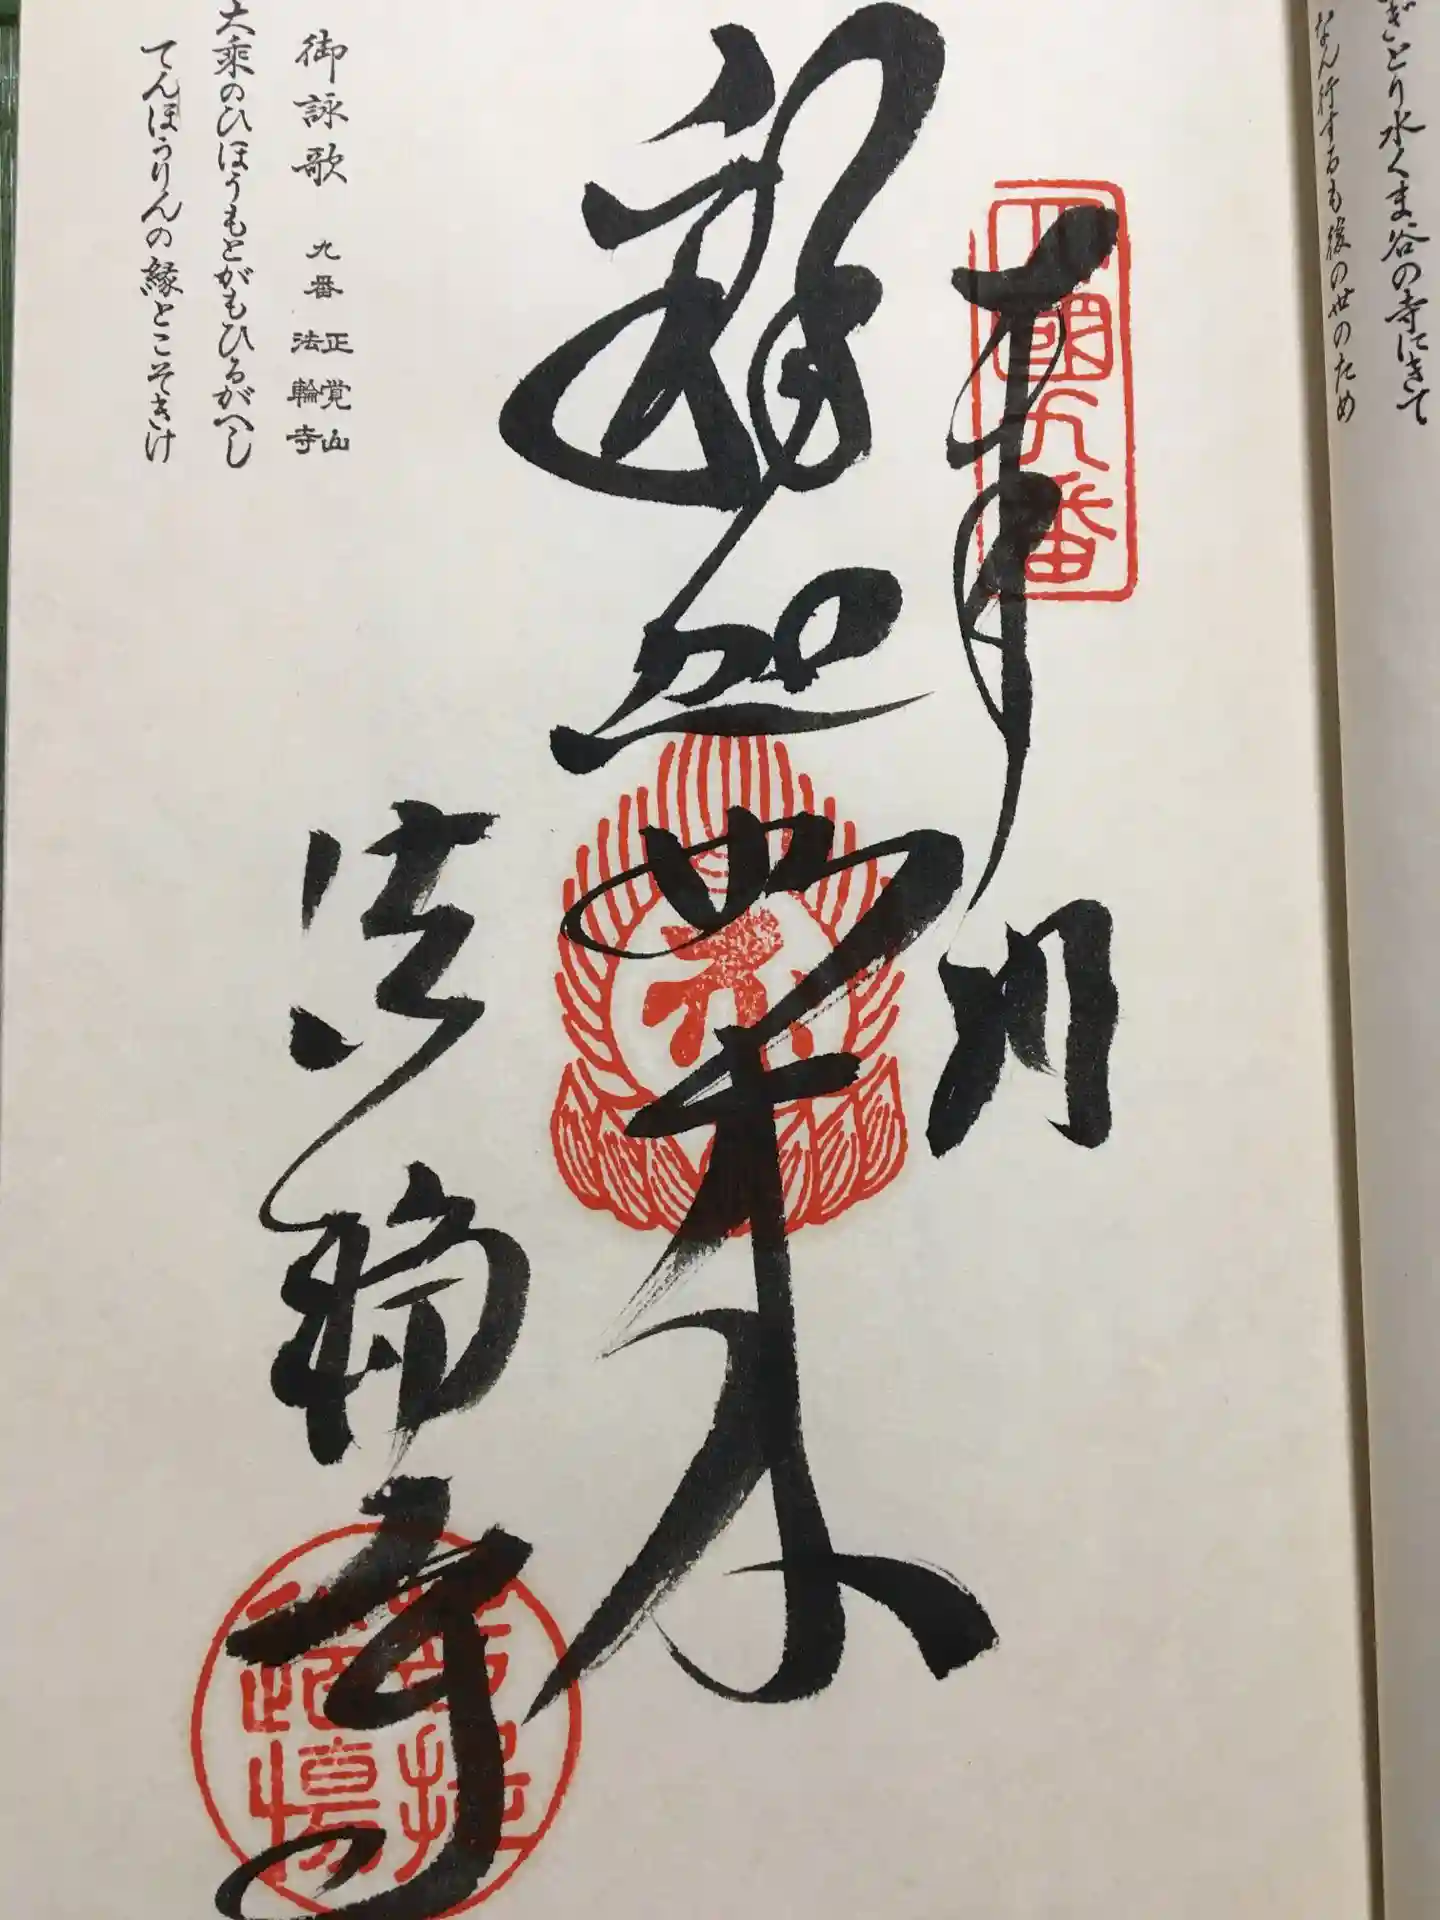 ぎとり水くま谷の寺にきて
なん行するも後の世のため
四國九番
奉
釋迦如来
法輪寺
御詠歌 九番 正覚山 法輪寺
大乘のひほうもとがもひるがへし
てんぼうりんの縁とこそきけ